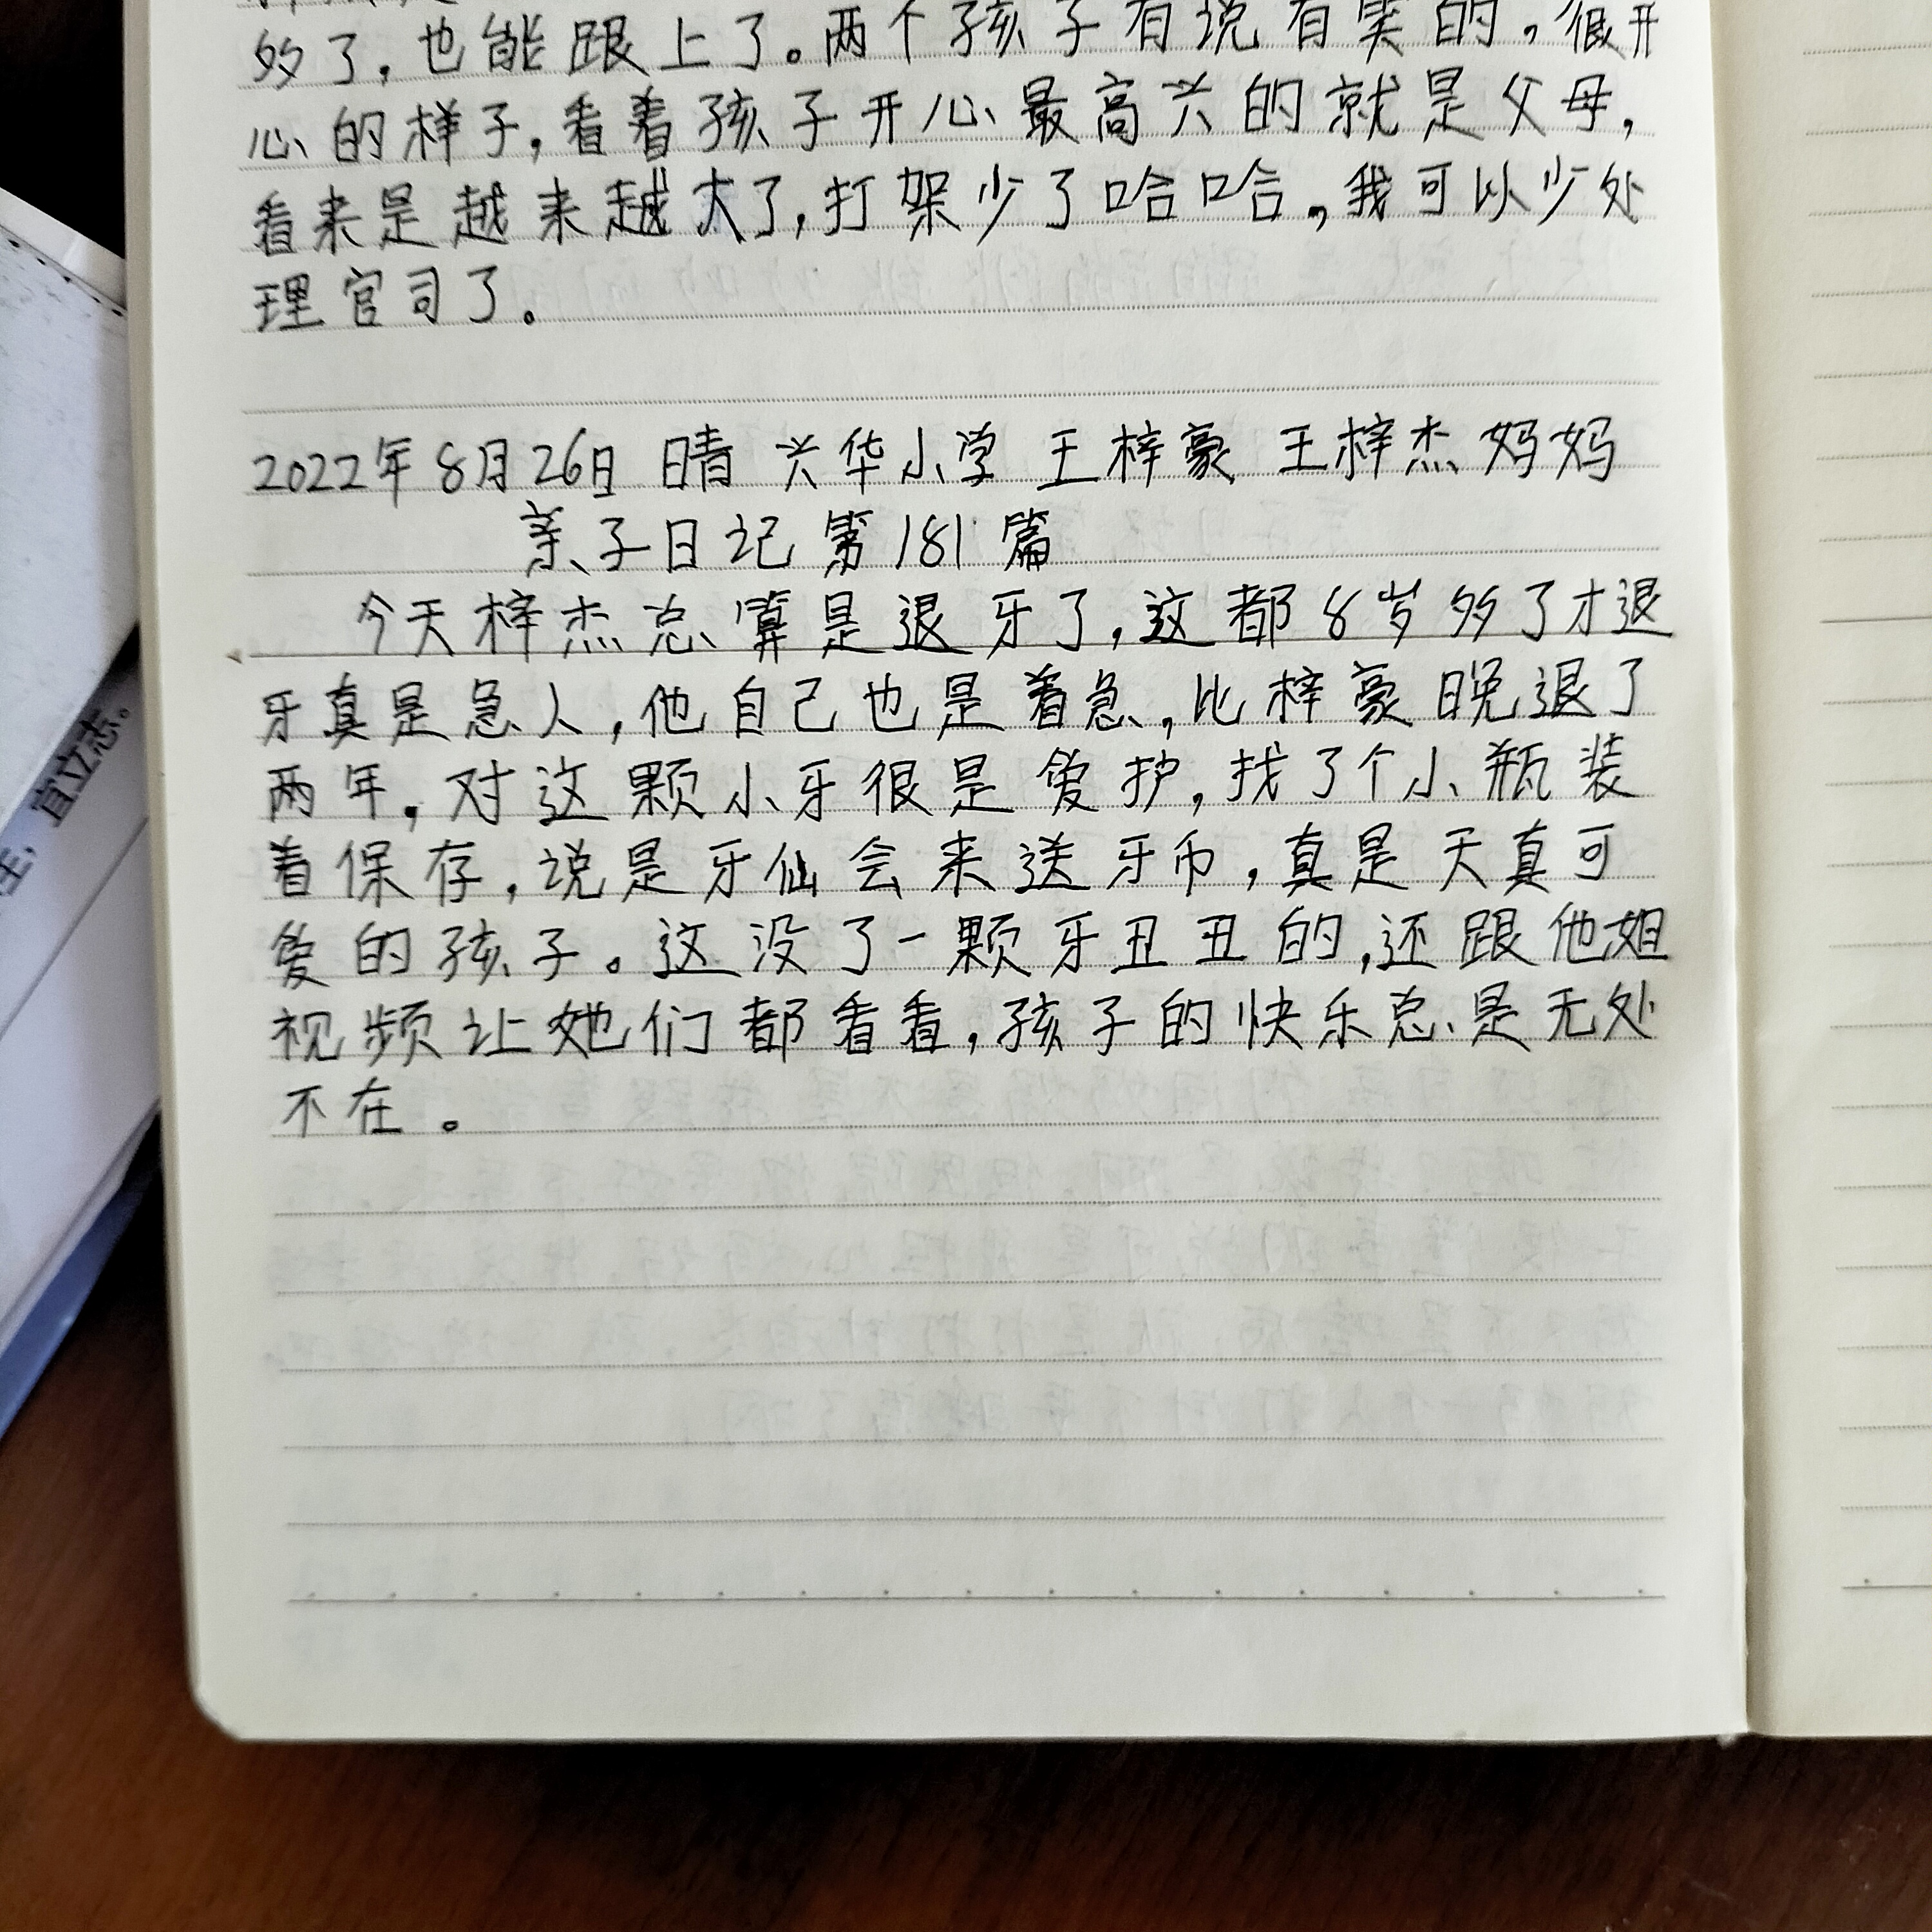 多了，也能跟上了。两个孩子有说有笑的，很开
心的样子，看着孩子开心最高兴的就是父母，
看来是越来越大了，打架少了哈哈。，我可以少处
理官司了。
2022年8月26日 晴 兴华小学 王梓豪 王梓杰妈妈
亲子日记第181篇
今天梓杰总算是退牙了，这都8岁多了才退
牙真是急人，他自己也是着急，比梓豪晚退了
两年。对这颗小牙很是爱护，找了个小瓶装
着保存，说是牙仙会来送牙币，真是天真可
爱的孩子。这没了一颗牙丑丑的，还跟他姐
视频让她们都看看，孩子的快乐总是无处
不在。
宜立志。